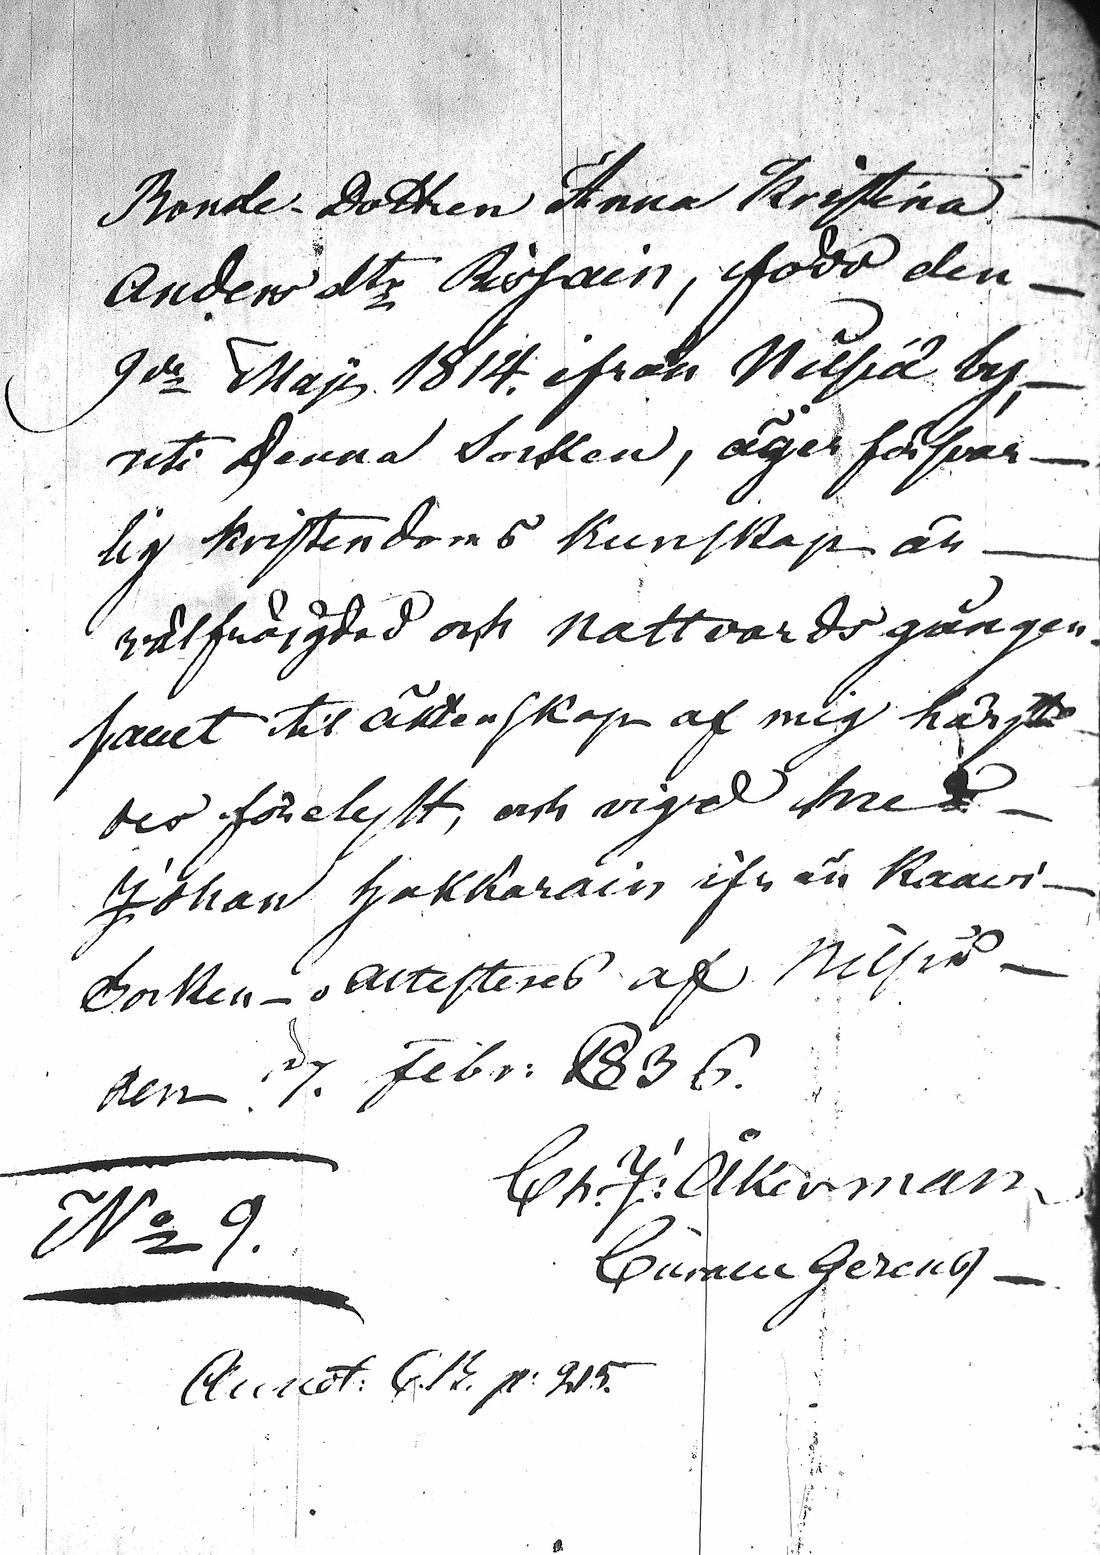 Bonde-Dottren Anna Kristina
Anders dtr Rissain, född den
9de Maji 1814. ifrån Nilsiä by,
uti Denna Sorken, äger försvar
lig kristendoms kunskap är
välfräjdad och Nattvards gången
samt til äktenskap af mig härstä
des förelyst, och vigd med
Johan Hakkarain ifrån Kaavi
Sorken attesteres af Nilsiä
den 7. Febr: 1836.
Ch. J: Åkerman
Curam Gerens
No 9.
Annot: C.B. p: 215.